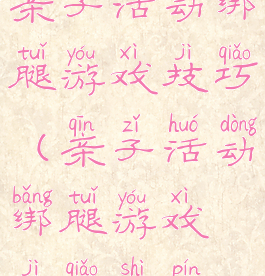 亲子活动绑
tuǐ yóu xì jì qiǎo
腿游戏技巧
qīn zǐ huó dòng
(亲子活动
bǎng tuǐ yóu xì
绑腿游戏
jì qiǎo shì pín